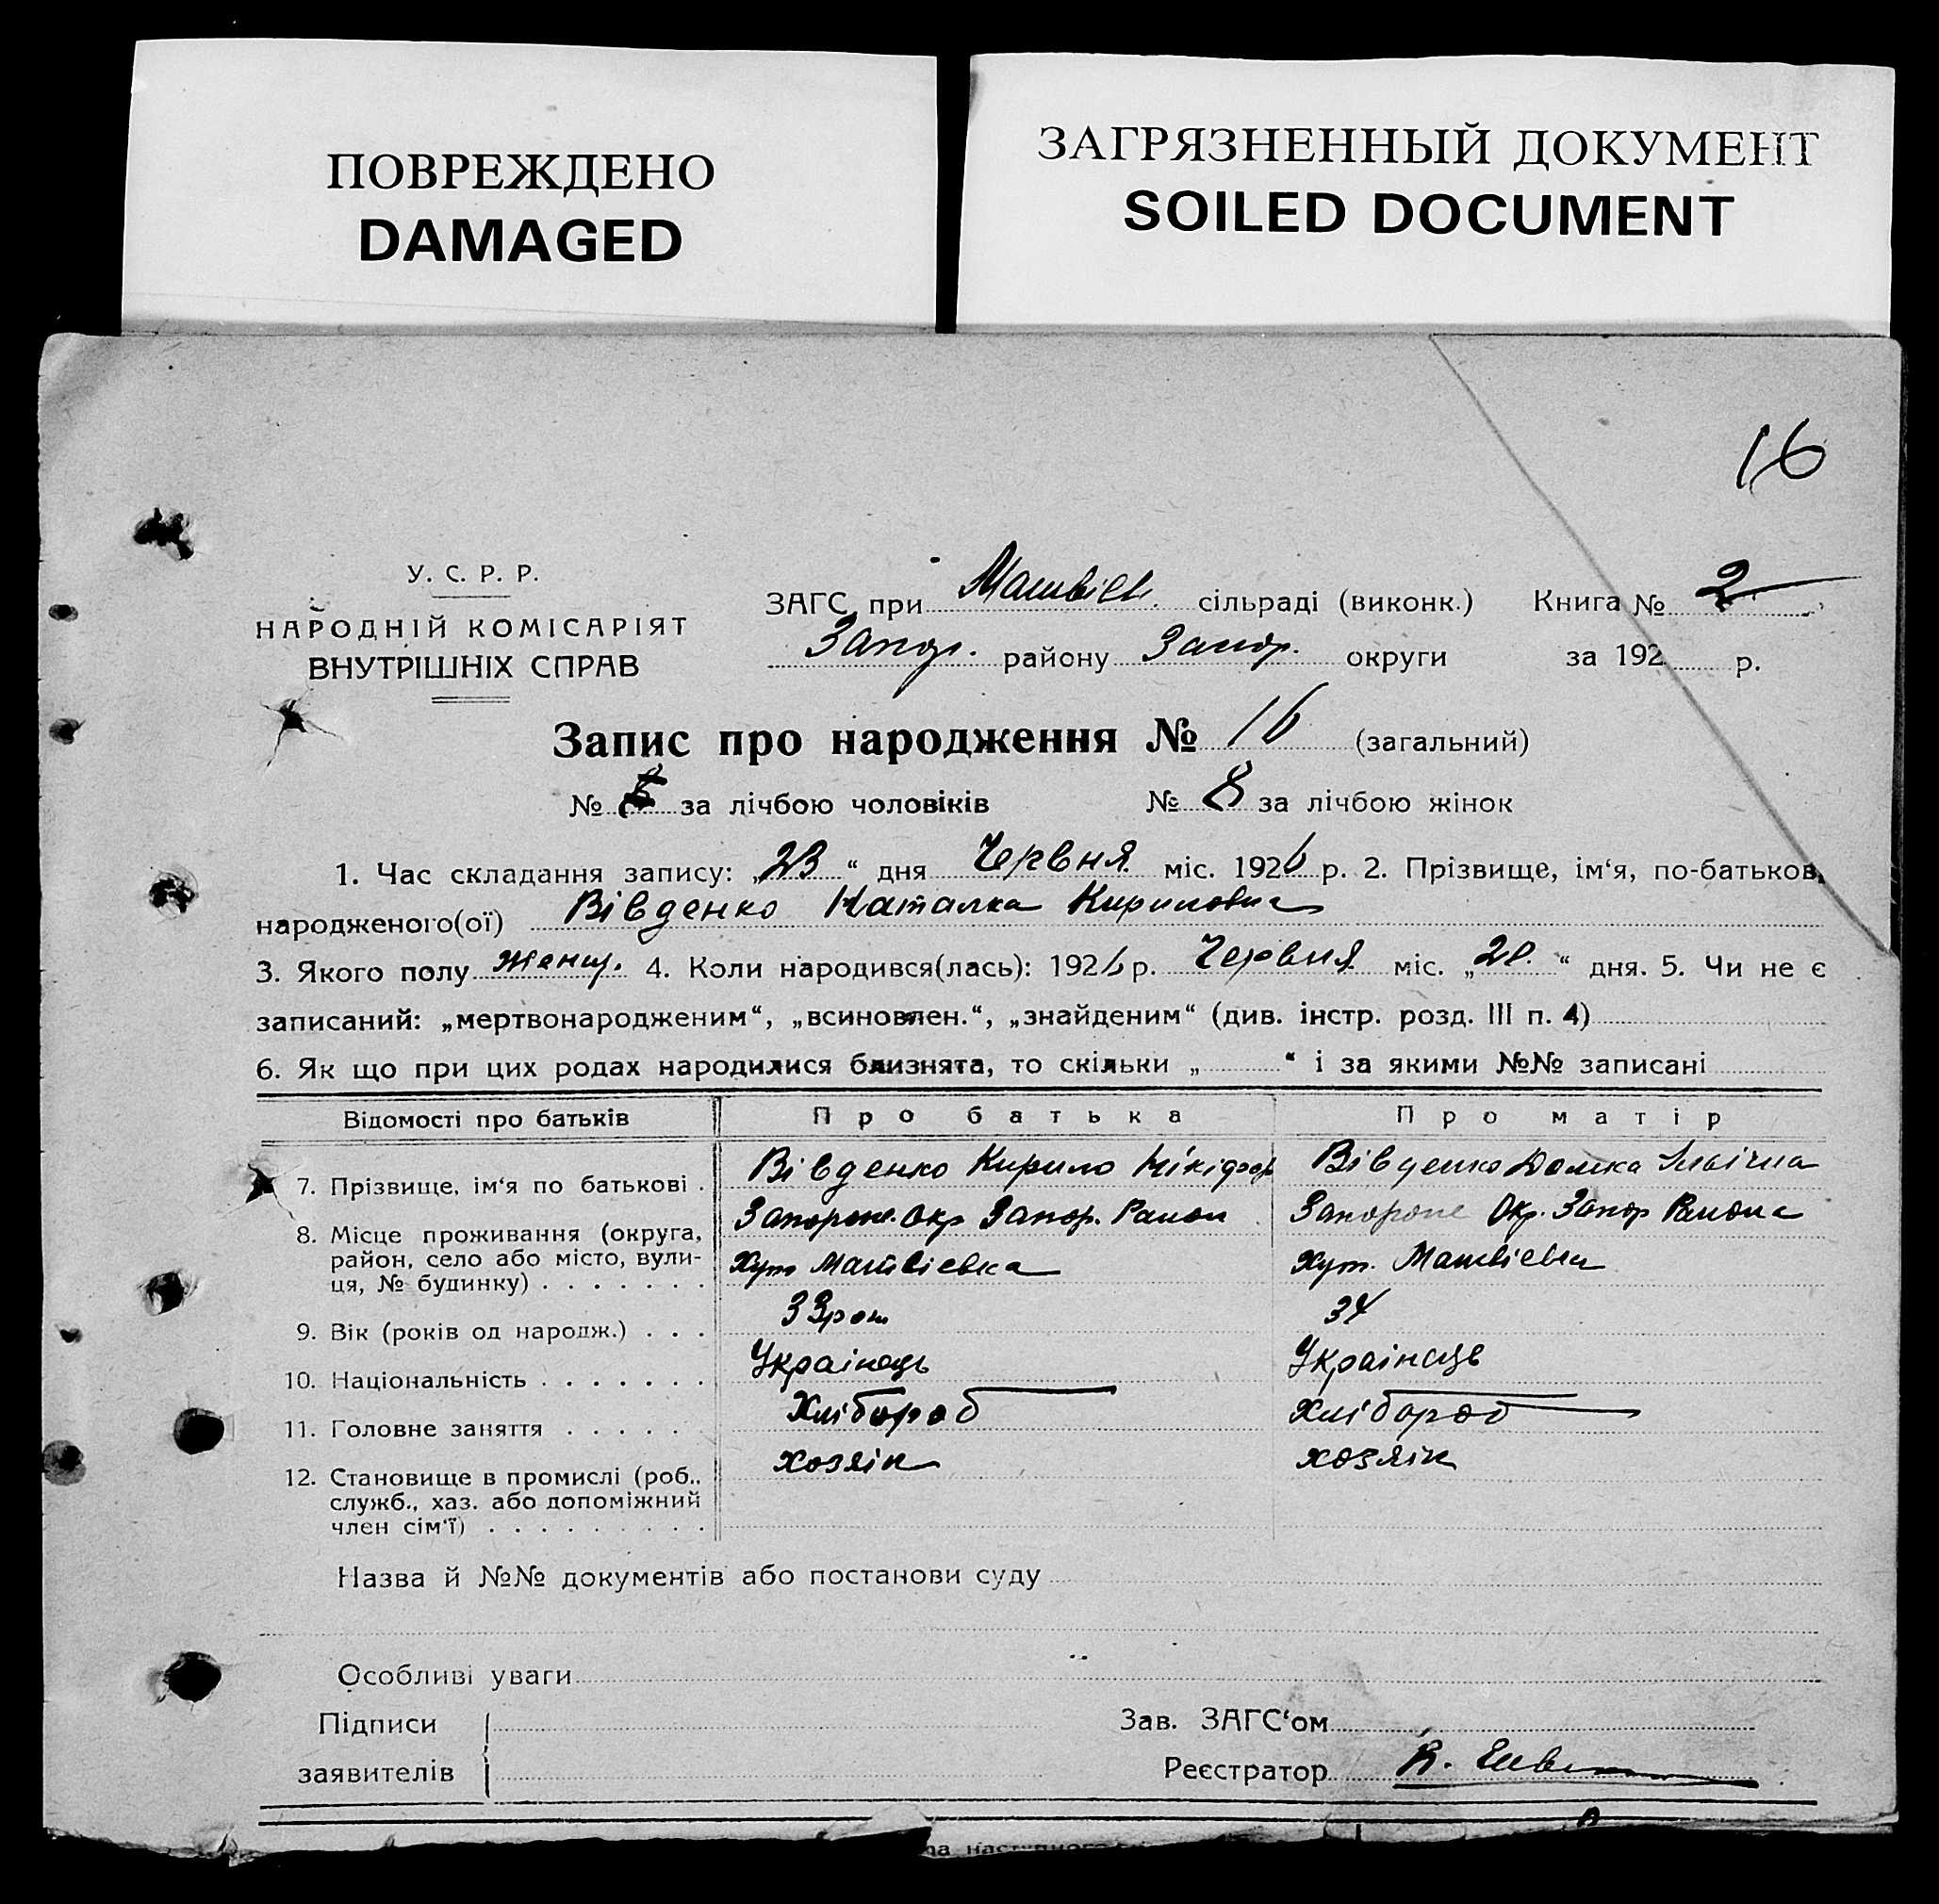 ПОВРЕЖДЕНО
DAMAGED
ЗАГРЯЗНЕННЫЙ ДОКУМЕНТ
SOILED DOCUMENT
16
У. С. Р. Р.
НАРОДНІЙ КОМІСАРІЯТ
ВНУТРІШНІХ СПРАВ
ЗАГС при Матвіев. сільраді (виконк.) Книга № 2
Запор. району Запор. округи за 192 р.
Запис про народження № 16 (загальний)
№ за лічбою чоловіків № 8 за лічбою жінок
1. Час складання запису: „23“ дня Червня міс. 1926 р. 2. Прізвище, ім‘я, по-батьков.
народженого(ої) Вівденко Наталка Кириловна
3. Якого полу женщ. 4. Коли народився(лась): 1926 р. Червня міс. „20.“ дня. 5. Чи не є
записаний: „мертвонародженим“, „всиновлен.“, „знайденим“ (див. інстр. розд. III п. 4)
6. Як що при цих родах народилися близнята, то скільки „ “ і за якими №№ записані
Відомості про батьків Про батька Про матір
7. Прізвище, ім‘я по батькові . Вівденко Кирило Нікіфор Вівденко Домка Ільічна
8. Місце проживання (округа, Запорож. Окр Запор. Район Запорож Окр. Запор Района
район, село або місто, вули-
ця, № будинку) . . . . . . . Хут Матвіевка Хут. Матвіевка
9. Вік (років од народж.) . . . 33 рок 34
10. Національність . . . . . . . Украінець Украінець
11. Головне заняття . . . . . Хлібороб Хлібороб
12. Становище в промислі (роб., хозяін хозяін
служб., хаз. або допоміжний
член сім‘ї) . . . . . . . . .
Назва й №№ документів або постанови суду
Особливі уваги
Підписи
заявителів
Зав. ЗАГС‘ом
Реєстратор